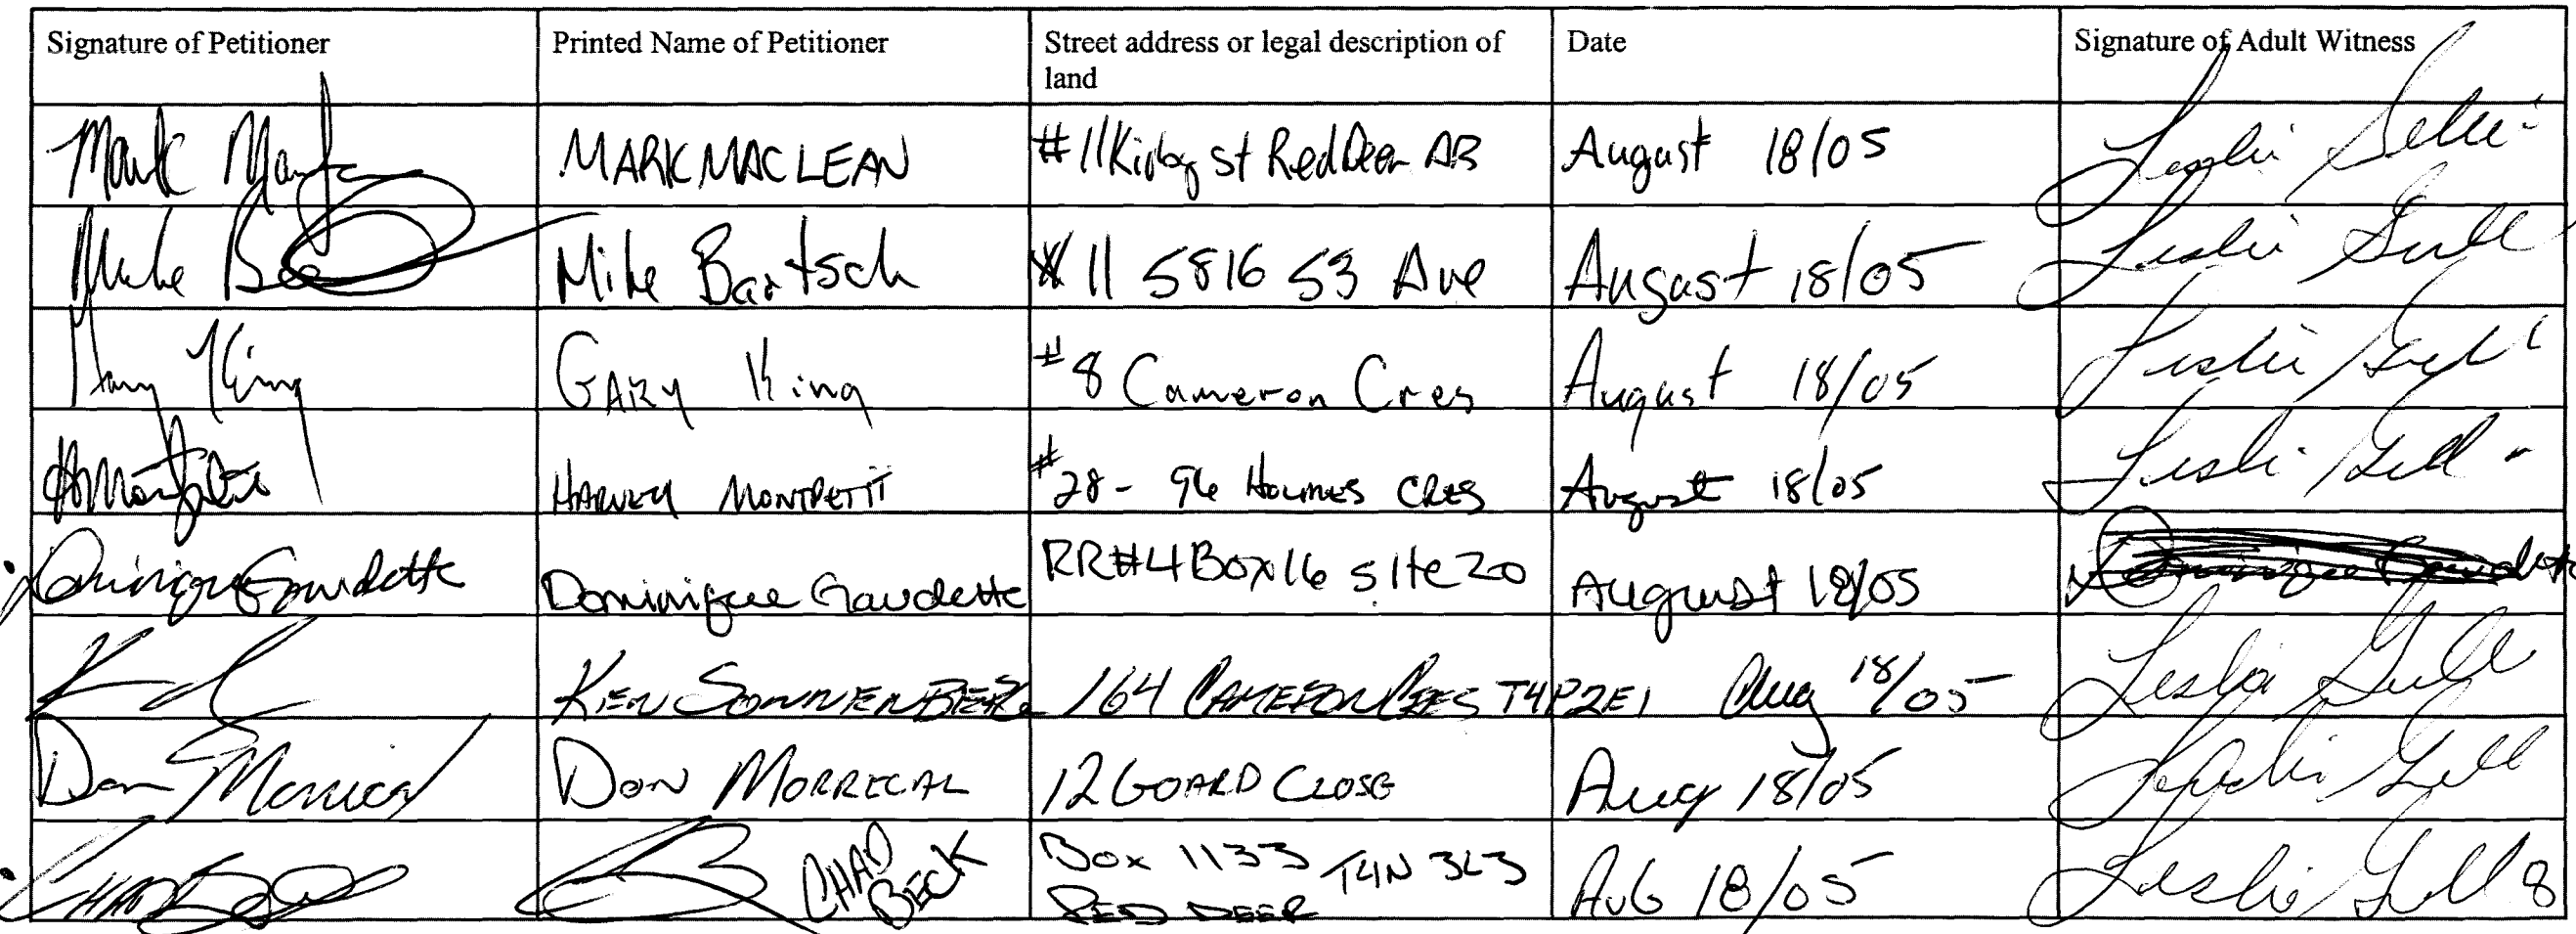 Signature of Petitioner Printed Name of Petitioner Street address or legal description of land Date Signature of Adult Witness
Mark MARK MACLEAN #11 Kirby St Red Deer AB August 18/05 Leslie
Mike Mike Bartsch #11 5816 53 Ave August 18/05 Leslie Gill
Gary King GARY King #8 Cameron Cres August 18/05 Leslie Gill
HARVEY MONTPETIT #28 - 96 HOLMES CRES August 18/05 Leslie Gill
Dominique Gaudette Dominique Gaudette RR#4 Box 16 site 20 August 18/05
KEN SONNENBERG 164 CAMERON CRES T4P2E1 Aug 18/05 Leslie Gill
Don DON MORRECAL 12 GOARD CLOSE Aug 18/05 Leslie Gill
CHAD BECK Box 1133 T4N 3L3 RED DEER AUG 18/05 Leslie Gill 8